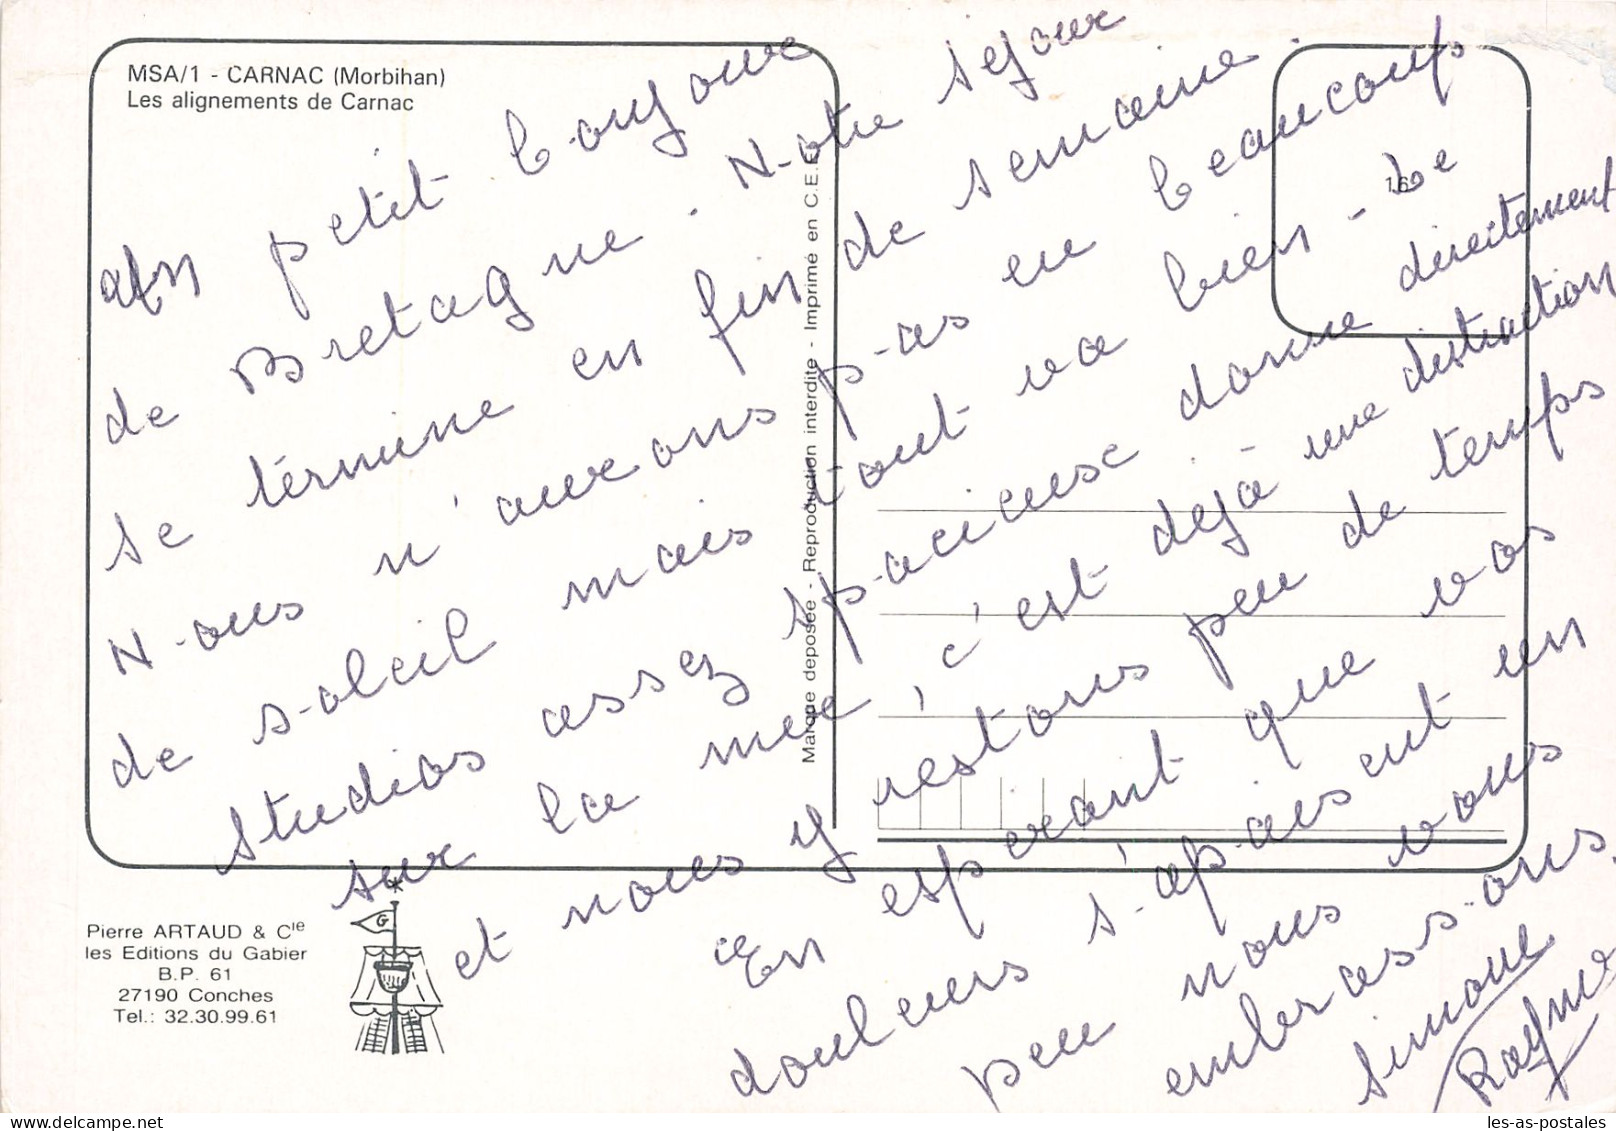 MSA/1 - CARNAC (Morbihan)
Les alignements de Carnac
petit bonjour
de Bretagne. Notre séjour
se termine en fin de semaine.
Nous n'aurons pas eu beaucoup
de soleil mais tout va bien - Le
studios assez spacieuse donne directement
sur la mer, c'est dejà une distraction
et nous y restons peu de temps
En espérant que vos
douleurs s'apaisent un
peu nous vous
embrassons.
Simone
Raymond
Marque déposée - Reproduction interdite - Imprimé en C.E.E.
16
Pierre ARTAUD & Cie
les Editions du Gabier
B.P. 61
27190 Conches
Tel.: 32.30.99.61
G
les-as-postales